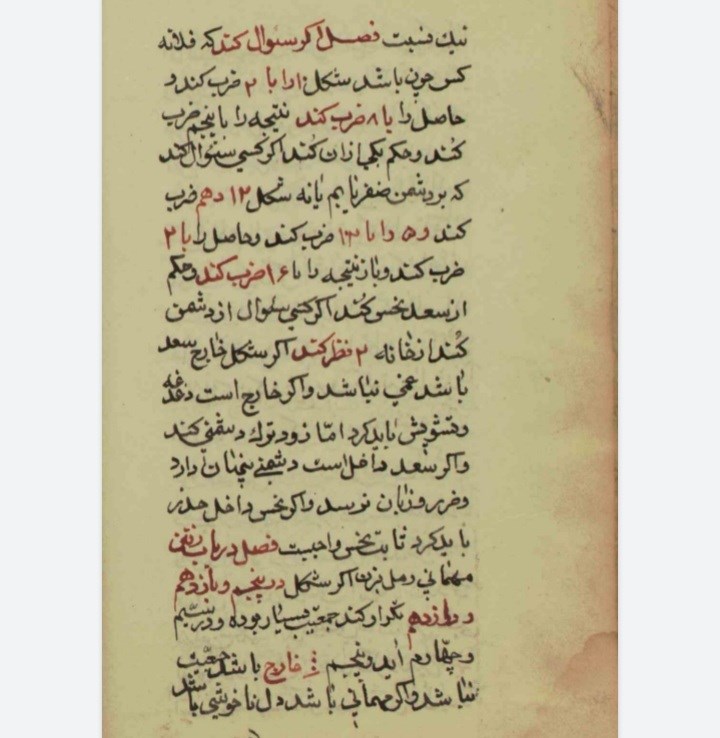 نیك نیست فصل اکر سئوال کند که فلانه
کس چون باشد شکل ا را با ۲ ضرب کند و
حاصل را با ۸ ضرب کند نتیجه را با پنجم ضرب
کند و حکم یکی ازان کند اکر کسی سئوال کند
که بر دشمن ضفر یابیم یا نه شکل ۱۲ دهم ضرب
کند و ۵ را با ۱۳ ضرب کند و حاصل را با ۲
ضرب کند و باز نتیجه را با ۱۶ ضرب کند و حکم
از سعد نحس کند اکر کسی سئوال از دشمن
کند از خانه ۲ نظر کند اکر شکل خارج سعد
باشد غمی نباشد و اکر خارج است دغدغه
وتشویش باید کرد اما زود ترك دشمنی کند
واکر سعد داخل است دشمنی پنهان دارد
وضرر وزیان نرسد واکر نحس داخل حذر
باید کرد ثابت نحس واجبست فصل در باب رفتن
مهمانی رمل بزن اکر شکل در پنجم و یازدهم
تکرار کند جمعیت بسیار بوده و در سیم
وچهارم آید وپنجم خارج باشد جمعیت
نباشد واکر مهمانی باشد دل ناخوشی باشد